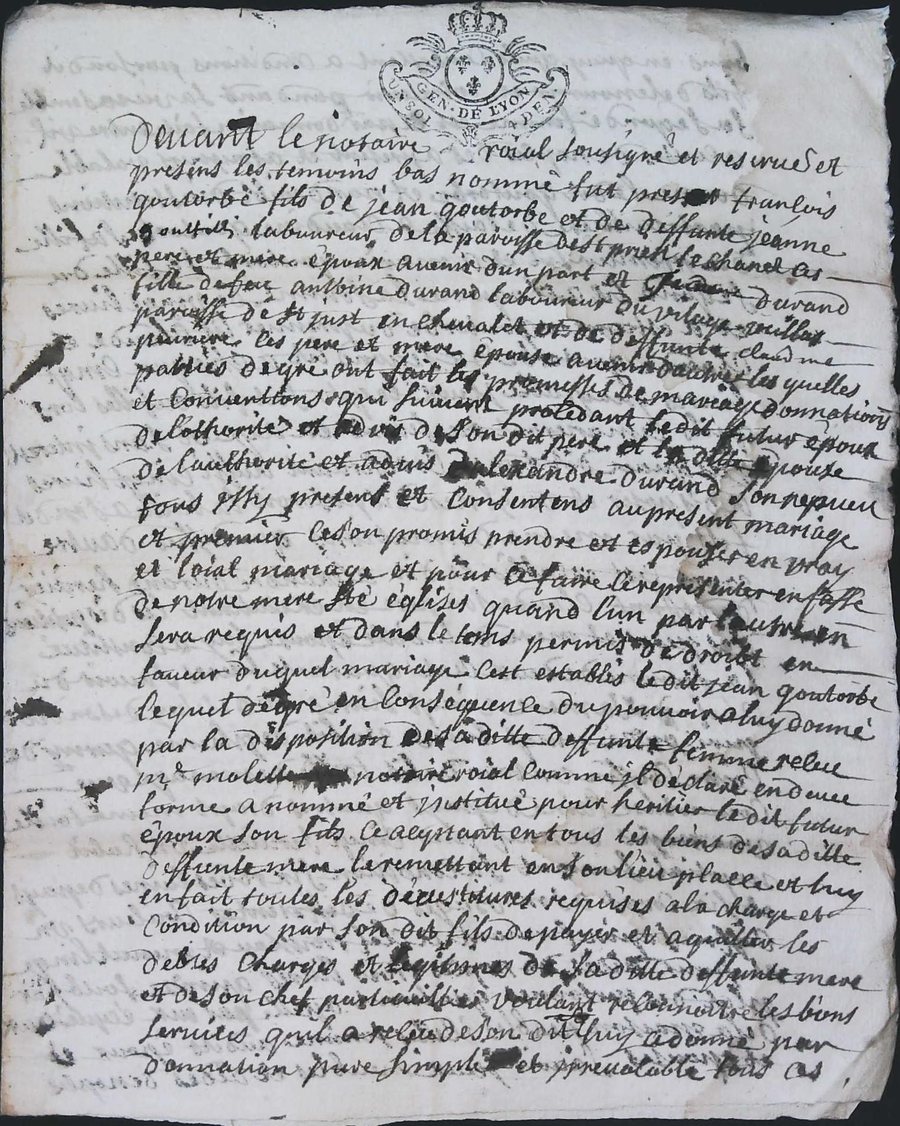 GEN. DE LYON
UN SOL 4 DEN
Devant le notaire roial sousigné et reservé et
presens les temoins bas nommé fut present françois
goutorbe fils de jean goutorbe et de deffunte jeanne
laboureur de la paroisse de st priest la
pere et mere époux avenir dun part et durand
fille de feu antoine durand laboureur du vilage
paroisse de st just en chevalet et de deffunte claudine
ces pere et mere épouse avenir dautre les quelles
parties de gré ont fait les promesses de mariage donnations
et conventions qui suivent procedant ledit futur époux
de lothorité et advis de son dit pere et la dite épouse
de lauthorité et advis dalexandre durand son nepveu
tous issy presens et consentens au present mariage
et premier ce son promis prendre et espouser en vray
et loial mariage et pour ce faire ce representer en fasse
de notre mere ste églises quand lun par lautre en
sera requis et dans le tems permis de droibt en
faveur duquel mariage cest establis ledit jean goutorbe
lequel de gré en conséquence du pouvoir a luy donné
par la disposition de sa ditte deffunte femme receu
me molette notaire roial comme jl declare en deue
forme a nommé et jnstitué pour heritier le dit futur
époux son fils en tous les biens de sa ditte
deffunte mere le remettant en son lieu place et luy
en fait toutes les requises a la charge et
condition par son dit fils de payer et aquitter les
debtes charges et legitimes de sa ditte deffunte mere
et de son chef particullier voulant reconnoitre les bons
services quil a receu de son dit luy a donné par
donnation pure simple et jrrevocable tous ces